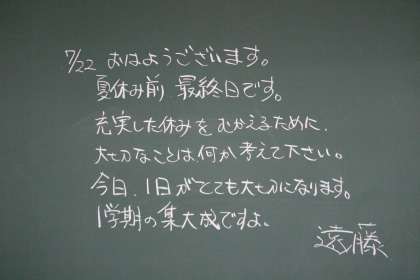 7/22 おはようございます。
夏休み前 最終日です。
充実した休みをむかえるために、
大切なことは何か考えて下さい。
今日、1日がとても大切になります。
1学期の集大成ですよ。
遠藤